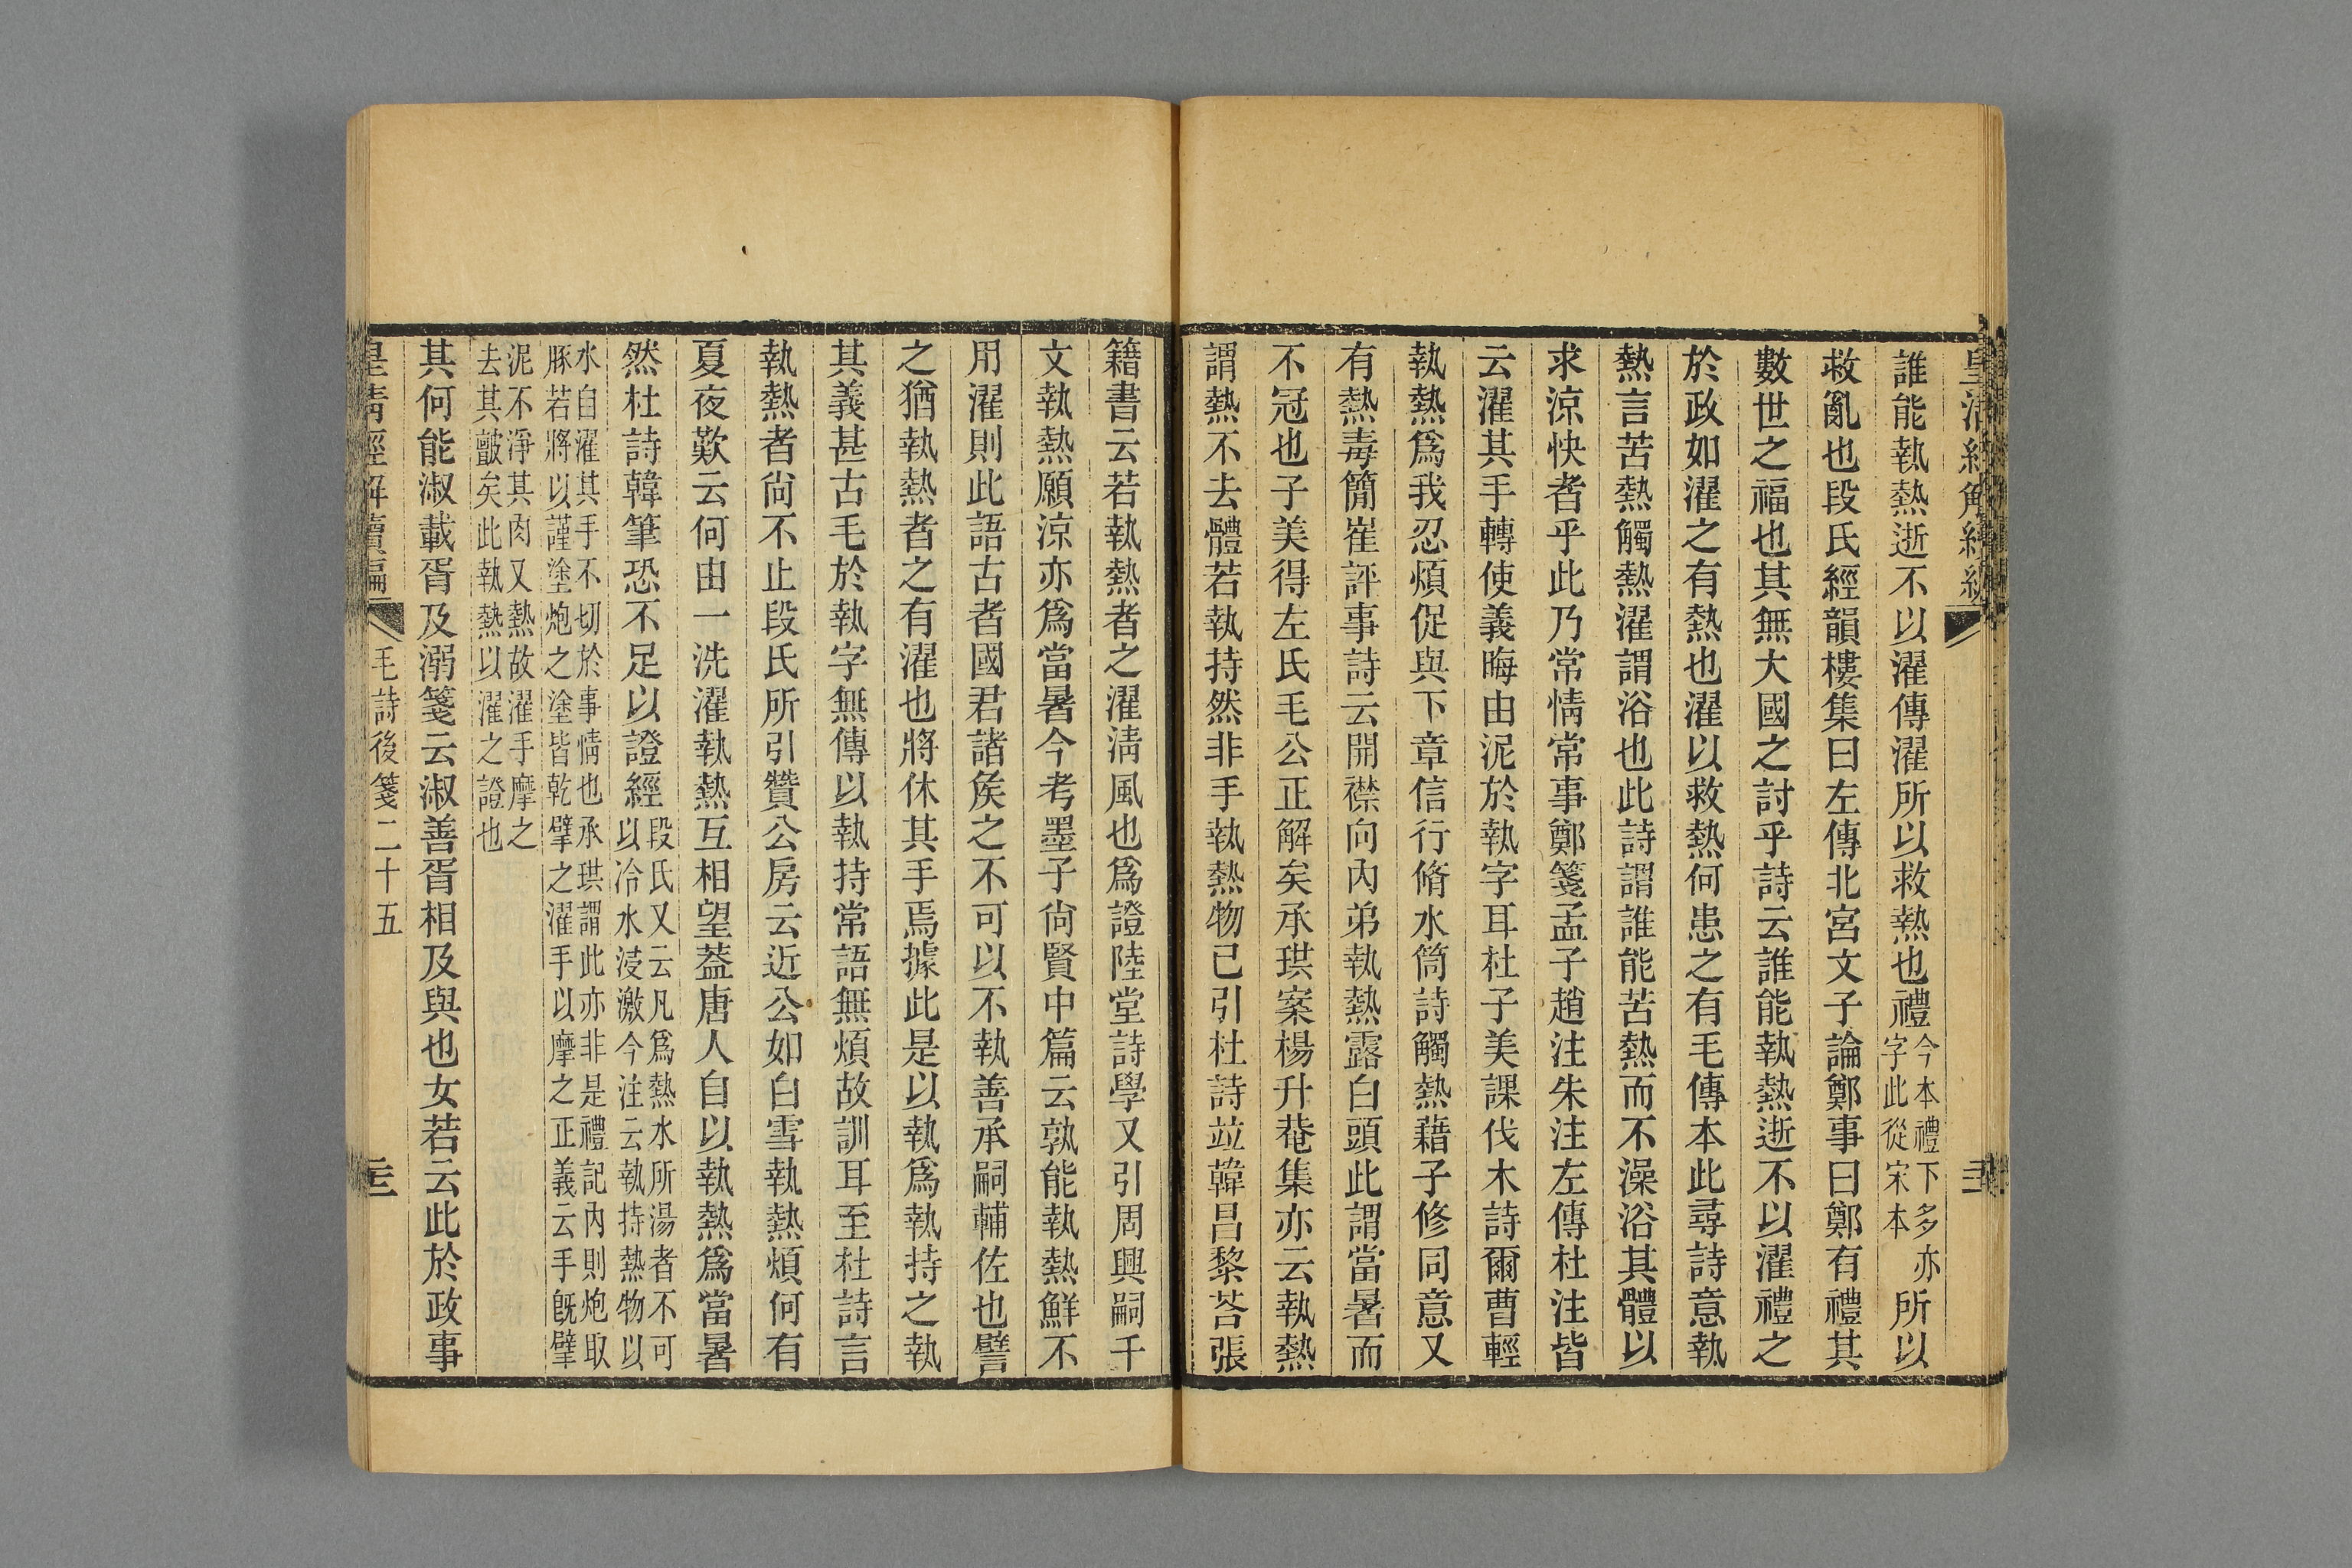 誰能執熱逝不以濯傳濯所以救熱也禮今本禮下多亦字此從宋本所以
救亂也段氏經韻樓集曰左傳北宮文子論鄭事曰鄭有禮其
數世之福也其無大國之討乎詩云誰能執熱逝不以濯禮之
於政如濯之有熱也濯以救熱何患之有毛傳本此尋詩意執
熱言苦熱觸熱濯謂浴也此詩謂誰能苦熱而不澡浴其體以
求涼快者乎此乃常情常事鄭箋孟子趙注朱注左傳杜注皆
云濯其手轉使義晦由泥於執字耳杜子美課伐木詩爾曹輕
執熱爲我忍煩促與下章信行脩水筒詩觸熱藉子修同意又
有熱毒簡崔評事詩云開襟向內弟執熱露白頭此謂當暑而
不冠也子美得左氏毛公正解矣承珙案楊升菴集亦云執熱
謂熱不去體若執持然非手執熱物已引杜詩竝韓昌黎荅張
籍書云若執熱者之濯淸風也爲證陸堂詩學又引周興嗣千
文執熱願涼亦爲當暑今考墨子尙賢中篇云孰能執熱鮮不
用濯則此語古者國君諸矦之不可以不執善承嗣輔佐也譬
之猶執熱者之有濯也將休其手焉據此是以執爲執持之執
其義甚古毛於執字無傳以執持常語無煩故訓耳至杜詩言
執熱者尙不止段氏所引贊公房云近公如白雪執熱煩何有
夏夜歎云何由一洗濯執熱互相望葢唐人自以執熱爲當暑
然杜詩韓筆恐不足以證經段氏又云凡爲熱水所湯者不可以冷水浸激今注云執持熱物以
水自濯其手不切於事情也承珙謂此亦非是禮記內則炮取豚若將以謹塗炮之塗皆乾擘之濯手以摩之正義云手旣擘
泥不淨其肉又熱故濯手摩之去其皽矣此執熱以濯之證也
其何能淑載胥及溺箋云淑善胥相及與也女若云此於政事
皇淸經解續編 毛詩後箋二十五